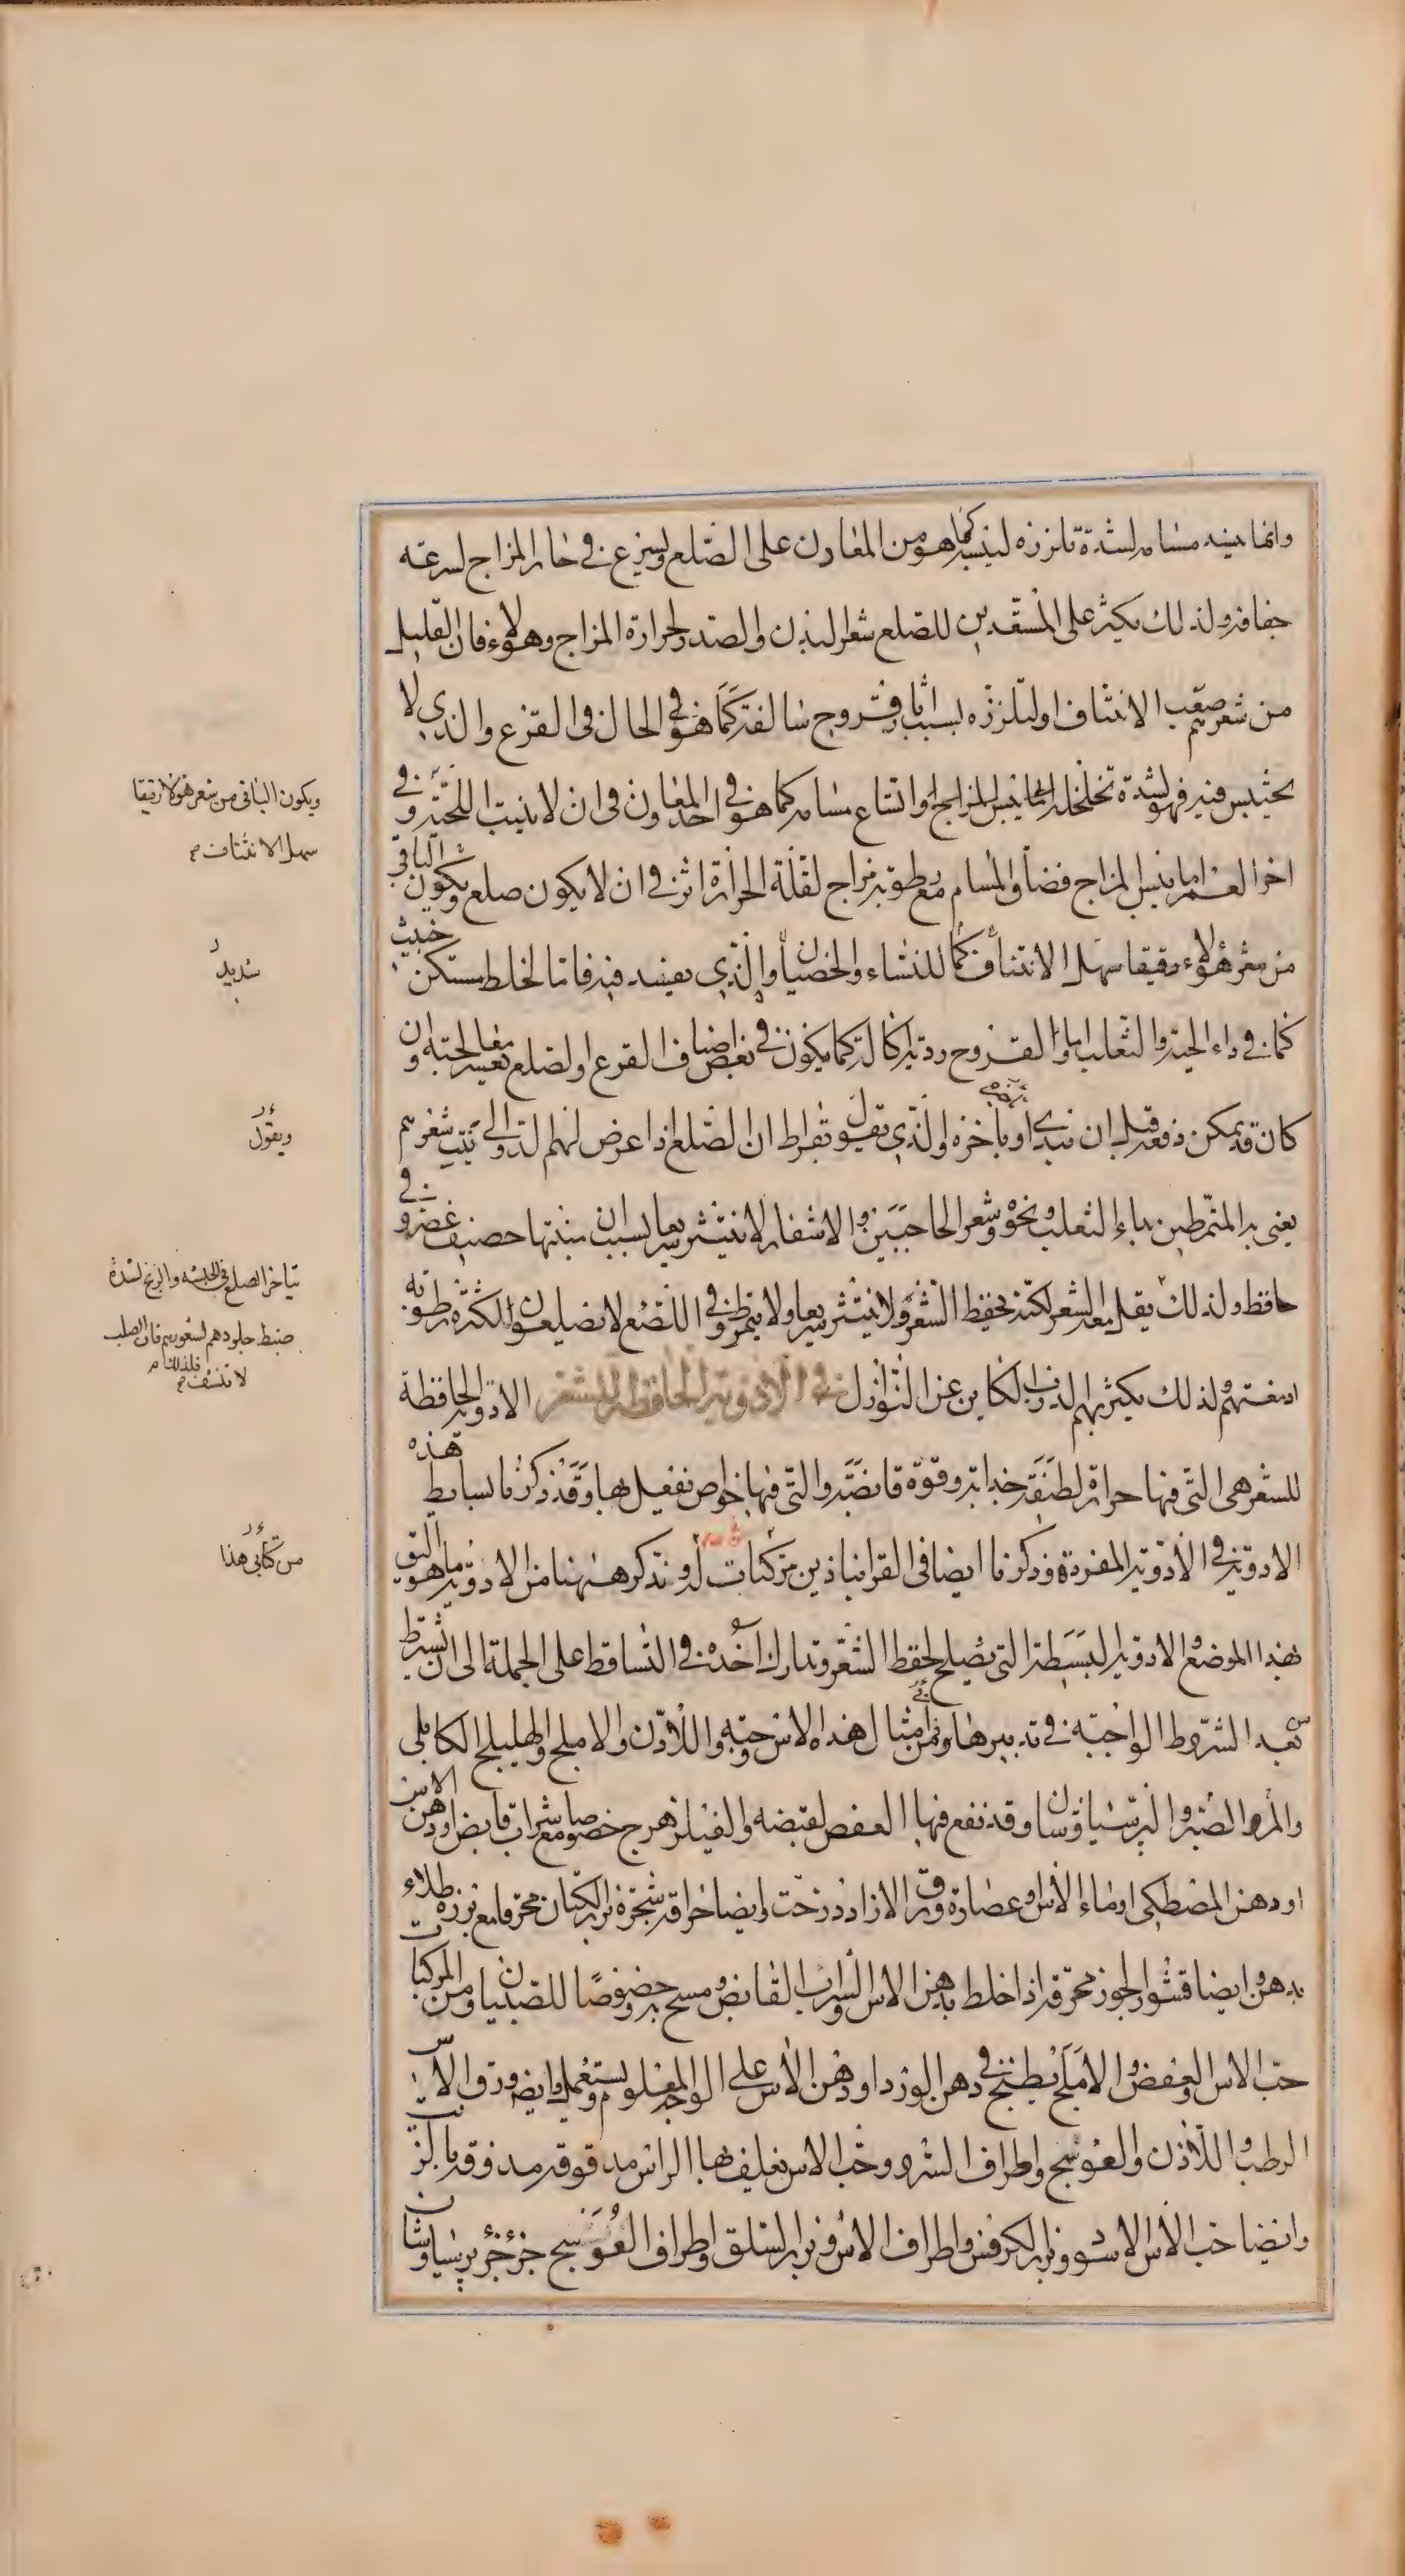 وانما ينسد مسامه لشدة تلززه ليبسه كما هو من المعاون على الصلع ويسرع في حار المزاج لسرعة
جفافه ولذلك يكثر على المستعدين للصلع شعر البدن والصدر لحرارة المزاج وهولاء فان القليل
من شعرهم صعب الانتتاف او لتلززه بسبب اثار قروح سالفة كما هو في الحال في القرع والذي لا
يحتبس فيه فهو لشدة تخلخله اما ليبس المزاج او اتساع مسامه كما هو في احد المعاون في ان لا ينبت اللحية وفي
اخر العمر اما ليبس المزاج فضاق المسام مع رطوبة مزاج لقلة الحرارة اثر في ان لا يكون صلع ويكون الباقي
من شعر هؤلاء دقيقا سهل الانتتاف كما للنساء والخصيان والذي يفسد فيه فاما لخلط مستكن خبيث
كما في داء الحية والثعلب اما والقروح ردية اكالة كما يكون في بعض اصناف القرع والصلع يعسر معالجته وان
كان قد يمكن دفعه قبل ان يبتدي او تأخره والذي يقول بقراط ان الصلع اذا عرض لهم الدوالي نبت شعرهم
يعني به المتمرطين بداء الثعلب ونحوه وشعر الحاجبين والاشفار لا ينتثر سريعا لسبب ان منبتها حصيف غضروفي
حافظ ولذلك يقل معه الشعر لكنه يحفظ الشعر ولا ينتثر سريعا ولا يتمرط وفي اللتضع لا يصلعون لكثرة رطوبة
ادمغتهم ولذلك يكثر بهم الذرب الكاين عن النوازل في الادوية الحافظة للشعر الادوية الحافظة
للشعر هي التي فيها حرارة لطيفة جذابة وقوة قابضة والتي فيها خواص تفعل بها وقد ذكرنا بسايط هذه
الادوية في الادوية المفردة وذكرنا ايضا في القراباذين مركبات له ونذكر ههنا من الادوية ما هو اليق
بهذا الموضع والادوية البسيطة التي يصلح لحفظ الشعر وتدارك اخذه في التساقط على الجملة الى ان نشترط
بعد الشروط الواجبة في تدبيرها ونمن امثال هذه الاس وحبه واللاذن والاملج والهليلج الكابلي
والمر والصبر والبرسياوشان وقد نفع فيها العفص لقبضه والفيلزهرج خصوصا مع شراب قابض او دهن الاس
او دهن المصطكي او ماء الاس وعصارة ورق الازاددرخت وايضا حراقة شجرة بزر الكتان محرقا مع بزره طلاء
بدهن وايضا قشور الجوز محرقة اذا خلط بدهن الاس والشراب القابض ومسح به وخصوصا للصبيان ومن المركبات
حب الاس والعفص والاملج يطبخ في دهن الورد او دهن الاس على الوجه المعلوم ويستعمل وايضا ورق الاس
الرطب واللاذن والعوسج واطراف السرو وحب الاس يغلف بها الراس مدقوقة مدوفة بالزيت
وايضا حب الاس الاسود وبزر الكرفس واطراف الاس وبزر السلق واطراف العوسج جزء جزء برسياوشان
ويكون الباقي من شعر هؤلا رقيقا
سهل الانتتاف
شديد
ويقول
يتأخر الصلع في الحبشه والزنج لشدة
ضبط جلودهم لشعورهم فان الصلب
فلذلك
لا تنشف
من كتابي هذا